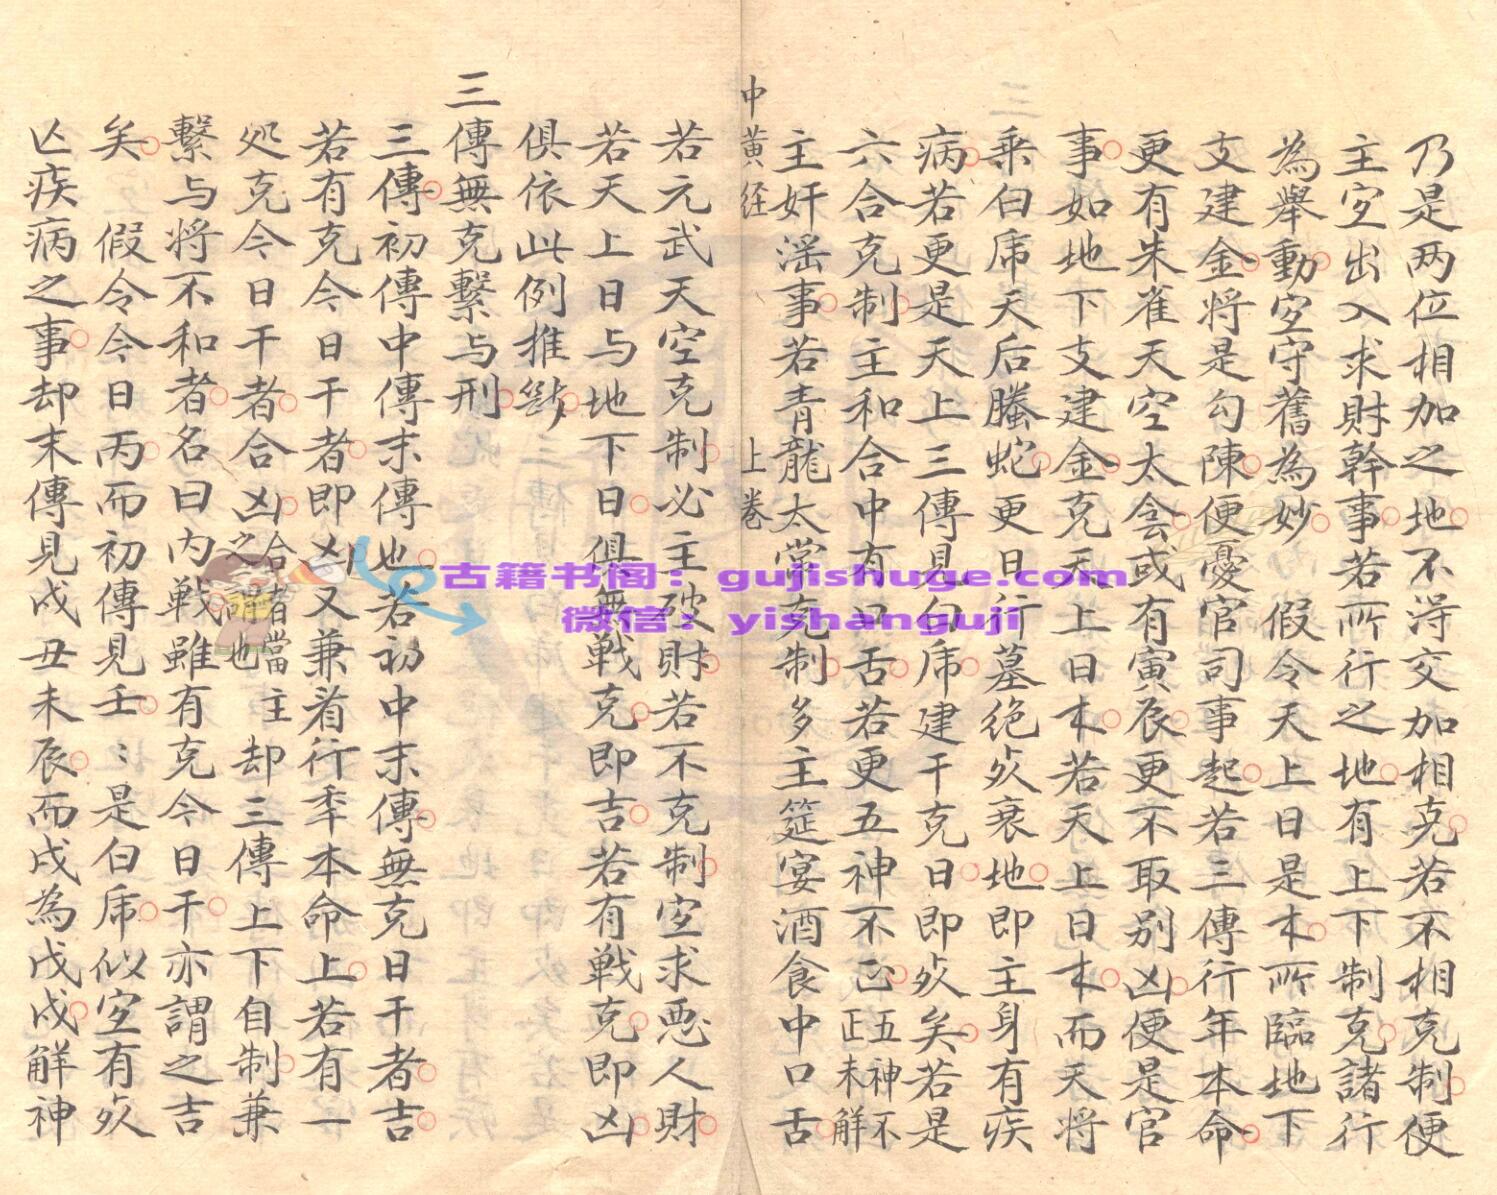 乃是两位相加之地不淂交加相克若不相克制便
主宊出入求財幹事若所行之地有上下制克諸行
為舉動宊守舊為妙 假令天上日是木所臨地下
支建金將是勾陳便憂官司事起若三傳行年本命
更有朱雀天空太侌或有寅辰更不取别凶便是官
事如地下支建金克天上日木若天上日木而天将
乘白虎天后螣蛇更日行墓绝死衰地即主身有疾
病若更是天上三傳見白虎建干克日即死矣若是
六合克制主和合中有口舌若更五神不正五神不正未解
主奸滛事若青龍太常克制多主筵宴酒食中口舌
中黄经 上卷
若元武天空克制必主破財若不克制宊求惡人財
若天上日与地下日俱無戰克即吉若有戰克即凶
俱依此例推斷
三傳無克繫与刑
三傳初傳中傳末傳也若初中末傳無克日干者吉
若有克今日干者即凶又兼看行年本命上若有一
処克今日干者合凶合者當主之謂也却三傳上下自制兼
繫与将不和者名曰内戰雖有克今日干亦謂之吉
矣 假令今日丙而初傳見壬﹕是白虎似宊有死
亾疾病之事却末傳見戌丑未辰而戌為戊戌解神
古籍书阁：gujishuge.com
微信：yishanguji